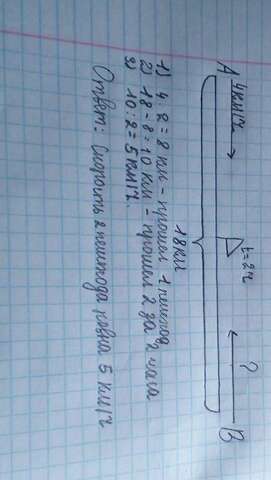 A 4 км/ч t=2ч. ? B
18 км
1) 4 · 2 = 8 км - прошел 1 пешеход
2) 18 - 8 = 10 км - прошел 2 за 2 часа
3) 10 : 2 = 5 км/ч.
Ответ: Скорость 2 пешехода равна 5 км/ч